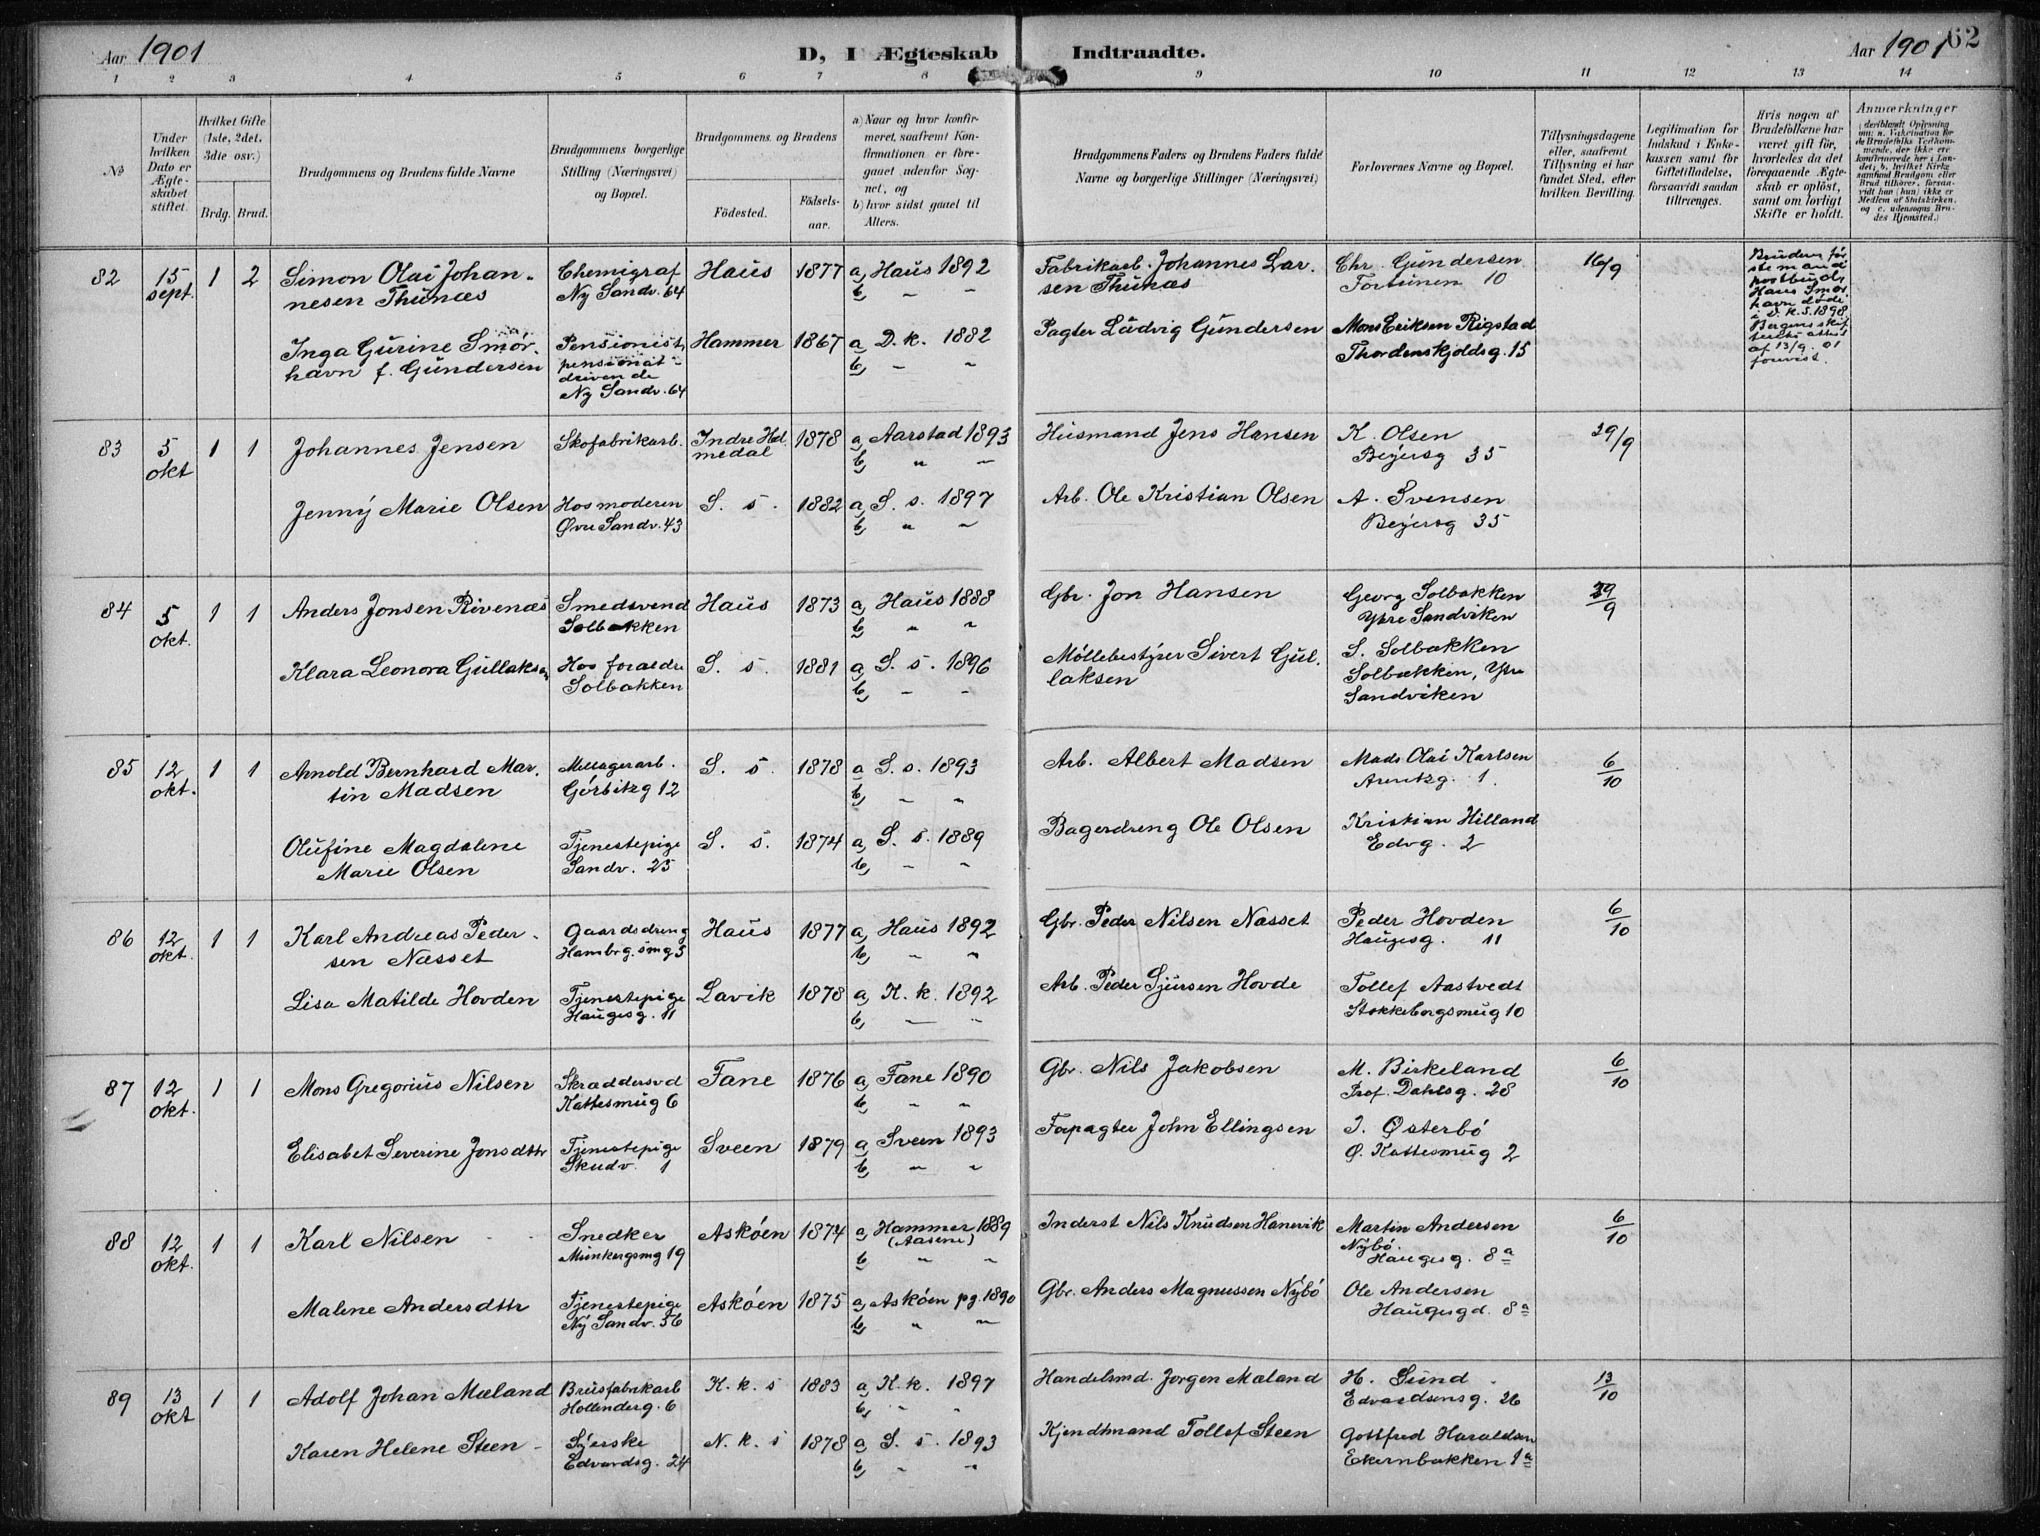 Aar 1901 D, I Ægteskab Indtraadte. Aar 1901 62
1 2 3 4 5 6 7 8 9 10 11 12 13 14
№
Under hvilken Dato er Ægteskabet stiftet.
Hvilket Gifte (1ste, 2det, 3die osv.)
Brdg. Brud.
Brudgommens og Brudens fulde Navne
Brudgommens borgerlige Stilling (Næringsvei) og Bopæl.
Brudgommens og Brudens
Födested. Födsels-aar.
a) Naar og hvor konfirmeret, saafremt Konfirmationen er foregaaet udenfor Sognet, og
b) hvor sidst gaaet til Alters.
Brudgommens Faders og Brudens Faders fulde Navne og borgerlige Stillinger (Næringsvei)
Forlovernes Navne og Bopæl.
Tillysningsdagene eller, saafremt Tillysning ei har fundet Sted, efter hvilken Bevilling.
Legitimation for Indskud i Enkekassen samt for Giftetilladelse, forsaavidt saadan tiltrænges.
Hvis nogen af Brudefolkene har været gift før, hvorledes da det foregaaende Ægteskab er opløst, samt om lovligt Skifte er holdt.
Anmærkninger
82 15 sept. 1 2 Simon Olai Johan- Chemigraf Haus 1877 a, Haus 1892 Fabrikarb. Johannes Lar- Chr. Gundersen 16/9
nesen Thunæs Ny Sandv. 64 b, " " sen Thunæs Fortunen 10
Inga Gurine Smør- Pensionist, Hammer 1867 a D.k. 1882 Pagter Ludvig Gundersen Mons Eriksen Rigstad
havn f. Gundersen pensionat- b, " " Thordenskjoldsg. 15
drivende
Ny Sandv. 64
Bruden før-
ste mand
postbud
Hans Smør-
havn døde
i D.k.s. 1898
Bergens skif
teretts attest
af 13/9. 01
forevist.
83 5 okt 1 1 Johannes Jensen Skofabrikarb. Indre Hol- 1878 a, Aarstad 1893 Husmand Jens Hansen K. Olsen 29/9
medal b, " " Beyersg 35
Jenny Marie Olsen Hos moderen S. s. 1882 a, S. s. 1897 Arb. Ole Kristian Olsen A. Svensen
Øvre Sandv. 43 b, " " Beyersg 35
84 5 okt. 1 1 Anders Jonsen Rivenæs Smedsvend Haus 1873 a, Haus 1888 Gbr. Jon Hansen Georg Solbakken 29/9
Solbakken b, " " Ytre Sandviken
Klara Leonora Gullaksen Hos forældre S. s. 1881 a, S. s. 1896 Møllebestyrer Sivert Gul- S. Solbakken
Solbakken b, " " laksen Solbakken, Ytre
Sandviken
85 12 okt. 1 1 Arnold Bernhard Mar- S. s. 1878 a S. s. 1893 Arb. Albert Madsen Mads Olai Karlsen 6/10
tin Madsen Görbitzg 12 b, " " Arentzg. 1.
Olufine Magdalene Tjenestepige S. s. 1874 a, S. s. 1889 Bagerdreng Ole Olsen Kristian Hilland
Marie Olsen Sandv. 25 b, " " Edvg. 2
86 12 okt. 1 1 Karl Andreas Peder- Gaardsdreng Haus 1877 a, Haus 1892 Gbr. Peder Nilsen Næsset Peder Hovden 6/10
sen Næsset Hambrg. smg 5 b, " " Haugesg. 11
Lisa Matilde Hovden Tjenestepige Lavik 1878 a, K. k. 1892 Arb. Peder Sjursen Hovde Tollef Aastvedt
Haugesg. 11 b, " " Stokkeborgsmug 10
87 12 okt. 1 1 Mons Gregorius Nilsen Skræddersvd Fane 1876 a, Fane 1890 Gbr. Nils Jakobsen M. Birkeland 6/10
Kattesmug 6 b, " " Prof. Dahlsg. 28
Elisabet Severine Jonsdttr Tjenestepige Sveen 1879 a Sveen 1893 Forpagter John Ellingsen J. Østerbö
Skudv. 1 b, " " Ø. Kattesmug 2
88 12 okt. 1 1 Karl Nilsen Snedker Askøen 1874 a, Hammer 1889 Inderst Nils Knudsen Hanevik Martin Andersen 6/10
Munkergsmg 19 (Aasene) b " " Nybö. Haugesg. 8a
Malene Andersdttr Tjenestepige Askøen 1875 a, Askøen pg. 1890 Gbr. Anders Magnussen Nybö Ole Andersen
Ny Sandv. 56 b, " " Haugesgd. 8a
89 13 okt 1 1 Adolf Johan Mæland Brusfabrikarb K. k. s 1883 a, K. k. 1897 Handelsmd. Jørgen Mæland H. Sund 13/10
Hollenderg. 6 b, " " Edvardsensg. 26
Karen Helene Steen Syerske N. k. s 1878 a S. s. 1893 Kjendtmand Tollef Steen Gottfred Haraldsen
Edvardsg. 24 b, " " Ekernbakken 1a